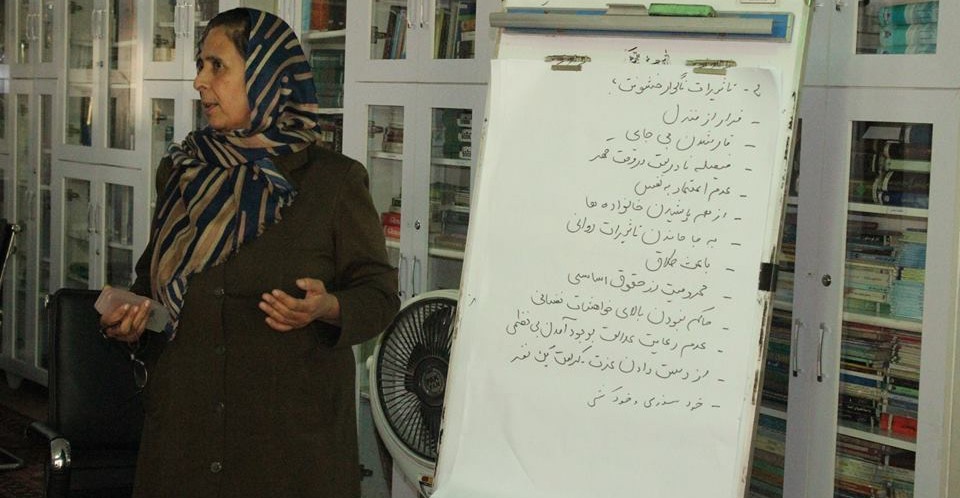 2- تاثیرات ناگوار خشونت:
- فرار از منزل
- قار شدن بی جای
- فیصله نادرست در وقت قهر
- عدم اعتماد به نفس
- از هم پاشیدن خانواده ها
- به جا ماندن تاثیرات روانی
- باعث طلاق
- محرومیت از حقوق اساسی
- حاکم نبودن بالای خواهشات نفسانی
- عدم رعایت عدالت بوجود آمدن بی نظمی
- از دست دادن عزت - کرامت یک نفر
- خود سوزی و خود کشی